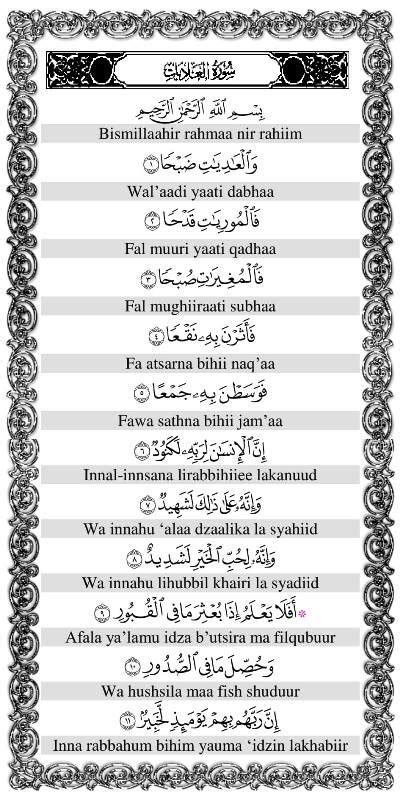 سُورَةُ العَادِيَاتِ
بِسْمِ اللَّهِ الرَّحْمَٰنِ الرَّحِيمِ
Bismillaahir rahmaa nir rahiim
وَالْعَادِيَاتِ ضَبْحًا ١
Wal’aadi yaati dabhaa
فَالْمُورِيَاتِ قَدْحًا ٢
Fal muuri yaati qadhaa
فَالْمُغِيرَاتِ صُبْحًا ٣
Fal mughiiraati subhaa
فَأَثَرْنَ بِهِ نَقْعًا ٤
Fa atsarna bihii naq’aa
فَوَسَطْنَ بِهِ جَمْعًا ٥
Fawa sathna bihii jam’aa
إِنَّ الْإِنسَانَ لِرَبِّهِ لَكَنُودٌ ٦
Innal-innsana lirabbihiiee lakanuud
وَإِنَّهُ عَلَىٰ ذَٰلِكَ لَشَهِيدٌ ٧
Wa innahu ‘alaa dzaalika la syahiid
وَإِنَّهُ لِحُبِّ الْخَيْرِ لَشَدِيدٌ ٨
Wa innahu lihubbil khairi la syadiid
أَفَلَا يَعْلَمُ إِذَا بُعْثِرَ مَا فِي الْقُبُورِ ٩
Afala ya’lamu idza b’utsira ma filqubuur
وَحُصِّلَ مَا فِي الصُّدُورِ ١٠
Wa hushsila maa fish shuduur
إِنَّ رَبَّهُم بِهِمْ يَوْمَئِذٍ لَّخَبِيرٌ ١١
Inna rabbahum bihim yauma ‘idzin lakhabiir